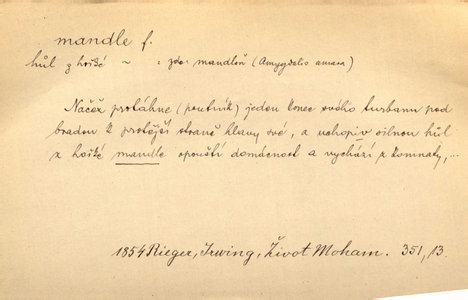 mandle f.
hůl z hořké ~ : zde mandloň (Amygdalis amara)
Načež protáhne (poutník) jeden konec svého turbanu pod
bradou k protější straně hlavy své, a uchopiv silnou hůl
z hořké mandle opouští domácnost a vychází z komnaty,...
1854 Rieger, Irwing, Život Moham. 351, 13.